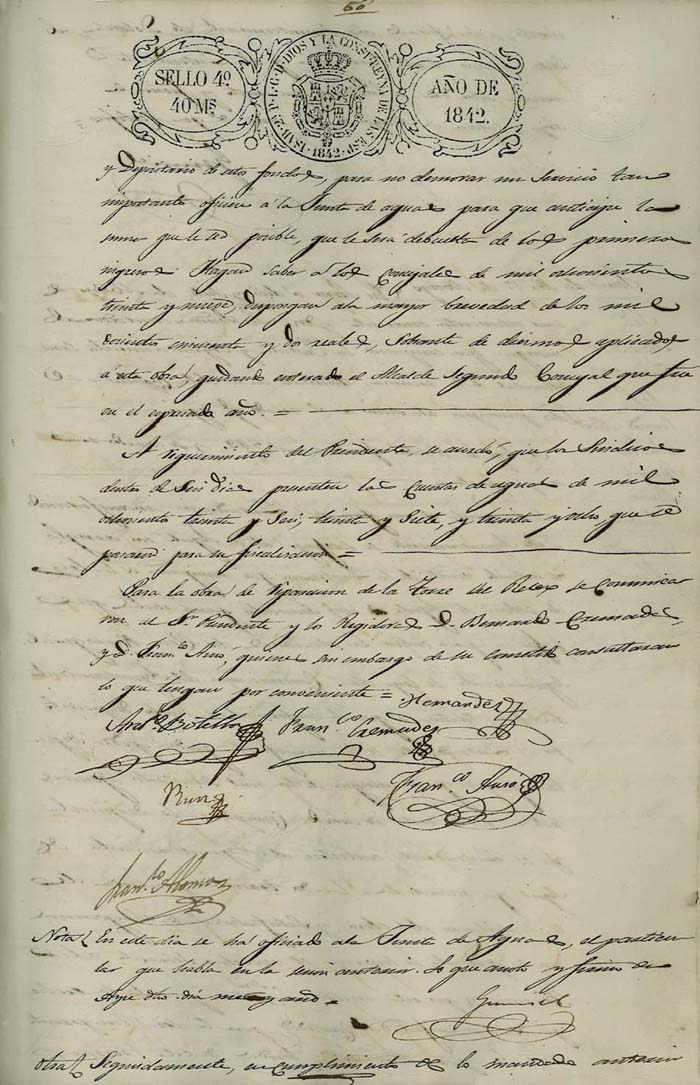 60
SELLO 4º
40 Ms
ISAB. 2ª P. L. G. D. DIOS Y LA CONST. REYNA DE LAS ESP. 1842
AÑO DE
1842.
y Depositario de estos fondos, para no demorar un servicio tan
importante oficiese á la Junta de aguas para que anticipe la
suma que le sea posible, que le será debuelta de los primeros
ingresos. Hagase saber á los Concejales de mil ochocientos
treinta y nueve, dispongan á la mayor brevedad de los mil
docientos cincuenta y dos reales, Sobrante de diezmos aplicados
á esta obra, quedando enterado el Alcalde Segundo Concejal que fue
en el espresado año. =
A requerimiento del Presidente, se acordó, que los Sindicos
dentro de Seis dias presenten las Cuentas de aguas de mil
ochocientos treinta y Seis, treinta y Siete, y treinta y ocho, que se
pasaran para su fiscalizacion =
Para la obra de reparacion de la Torre del Relox se comunica
al Sr. Presidente y los Regidores D. Bernardo Cremades,
y D. Franco. Auró, quienes sin embargo de su cometido consultaran
lo que tengan por conveniente =
Hernandez
Botella
Franco. Cremades
Ruiz
Franco. Auró
Franco. Alonso
Nota En este dia se ha oficiado á la Junta de Aguas, el particu
lar que habla en la sesion anterior. Lo que anoto y firmo en
Aspe dho. dia mes y año =
otra Seguidamente, en cumplimiento de lo mandado anterior